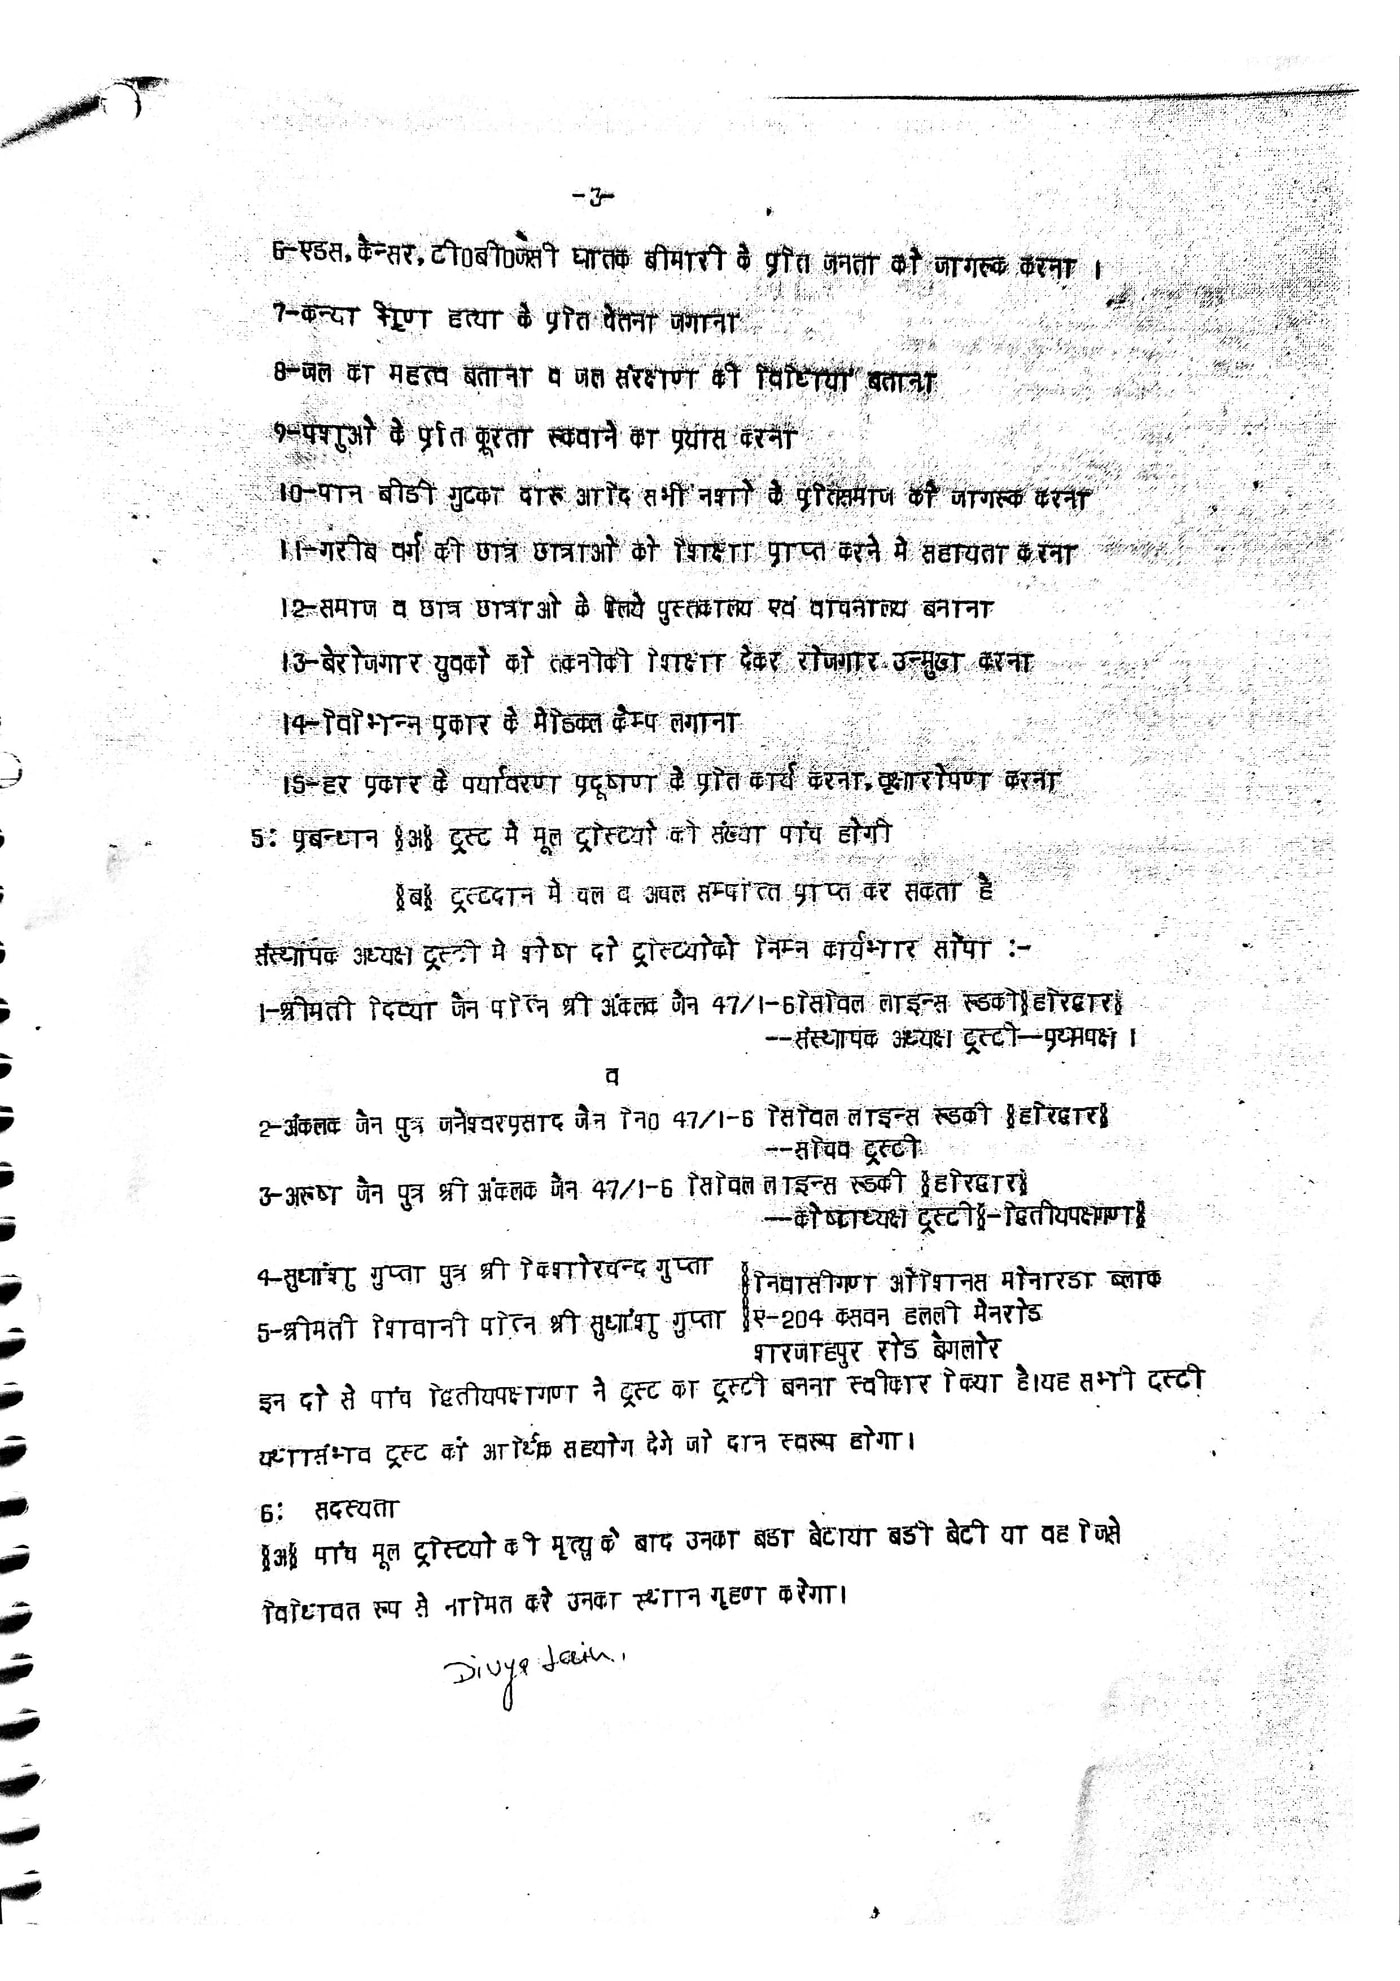 -3-
6-एडस.केन्सर.टी0बी0जैसी घातक बीमारी के प्रति जनता को जागरूक करना ।
7-कन्या भ्रूण हत्या के प्रति चेतना जगाना
8-जल का महत्व बताना व जल संरक्षण की विधियां बताना
9-पशुओ के प्रति क्रूरता रूकवाने का प्रयास करना
10-पान बीडी गुटका दारू आदि सभी नशो के प्रतिसमाज को जागरूक करना
11-गरीब वर्ग की छात्र छात्राओं को शिक्षा प्राप्त करने मे सहायता करना
12-समाज व छात्र छात्राओ के लिये पुस्तकालय एवं वाचनालय बनाना
13-बेरोजगार युवको को तकनीकी शिक्षा देकर रोजगार उन्मुख करना
14-विभिन्न प्रकार के मेडिकल केम्प लगाना
15-हर प्रकार के पर्यावरण प्रदूषण के प्रति कार्य करना.वृक्षारोपण करना
5: प्रबन्धन §अ§ ट्रस्ट मे मूल ट्रस्टियो की संख्या पांच होगी
§ब§ ट्रस्टदान मे चल व अचल सम्पत्ति प्राप्त कर सकता है
संस्थापक अध्यक्ष ट्रस्टी मे शेष दो ट्रस्टियोको निम्न कार्यभार सोपा :-
1-श्रीमती दिव्या जैन पत्नि श्री अंकलक जैन 47/1-6सिविल लाइन्स रूडकी§हरिद्वार§
--संस्थापक अध्यक्ष ट्रस्टी--प्रथमपक्ष ।
व
2-अंकलक जैन पुत्र जनेश्वरप्रसाद जैन नि0 47/1-6 सिविल लाइन्स रूडकी §हरिद्वार§
--सचिव ट्रस्टी
3-अरूष जैन पुत्र श्री अंकलक जैन 47/1-6 सिविल लाइन्स रूडकी §हरिद्वार§
--कोषाध्यक्ष ट्रस्टी§-द्वितीयपक्षगण§
4-सुधांशु गुप्ता पुत्र श्री किशोरचन्द गुप्ता §निवासीगण ओशिनस मोनारडा ब्लाक
5-श्रीमती शिवानी पत्नि श्री सुधांशु गुप्ता §ए-204 कसवन हलली मेनरोड
शरजाहपुर रोड बेगलोर
इन दो से पांच द्वितीयपक्षगण ने ट्रस्ट का ट्रस्टी बनना स्वीकार किया है।यह सभी ट्रस्टी
यथासंभव ट्रस्ट को आर्थिक सहयोग देगे जो दान स्वरूप होगा।
6: सदस्यता
§अ§ पांच मूल ट्रस्टियो की मृत्यु के बाद उनका बडा बेटाया बडी बेटी या वह जिसे
विधिवत रूप से नामित करे उनका स्थान गृहण करेगा।
Divya Jain.